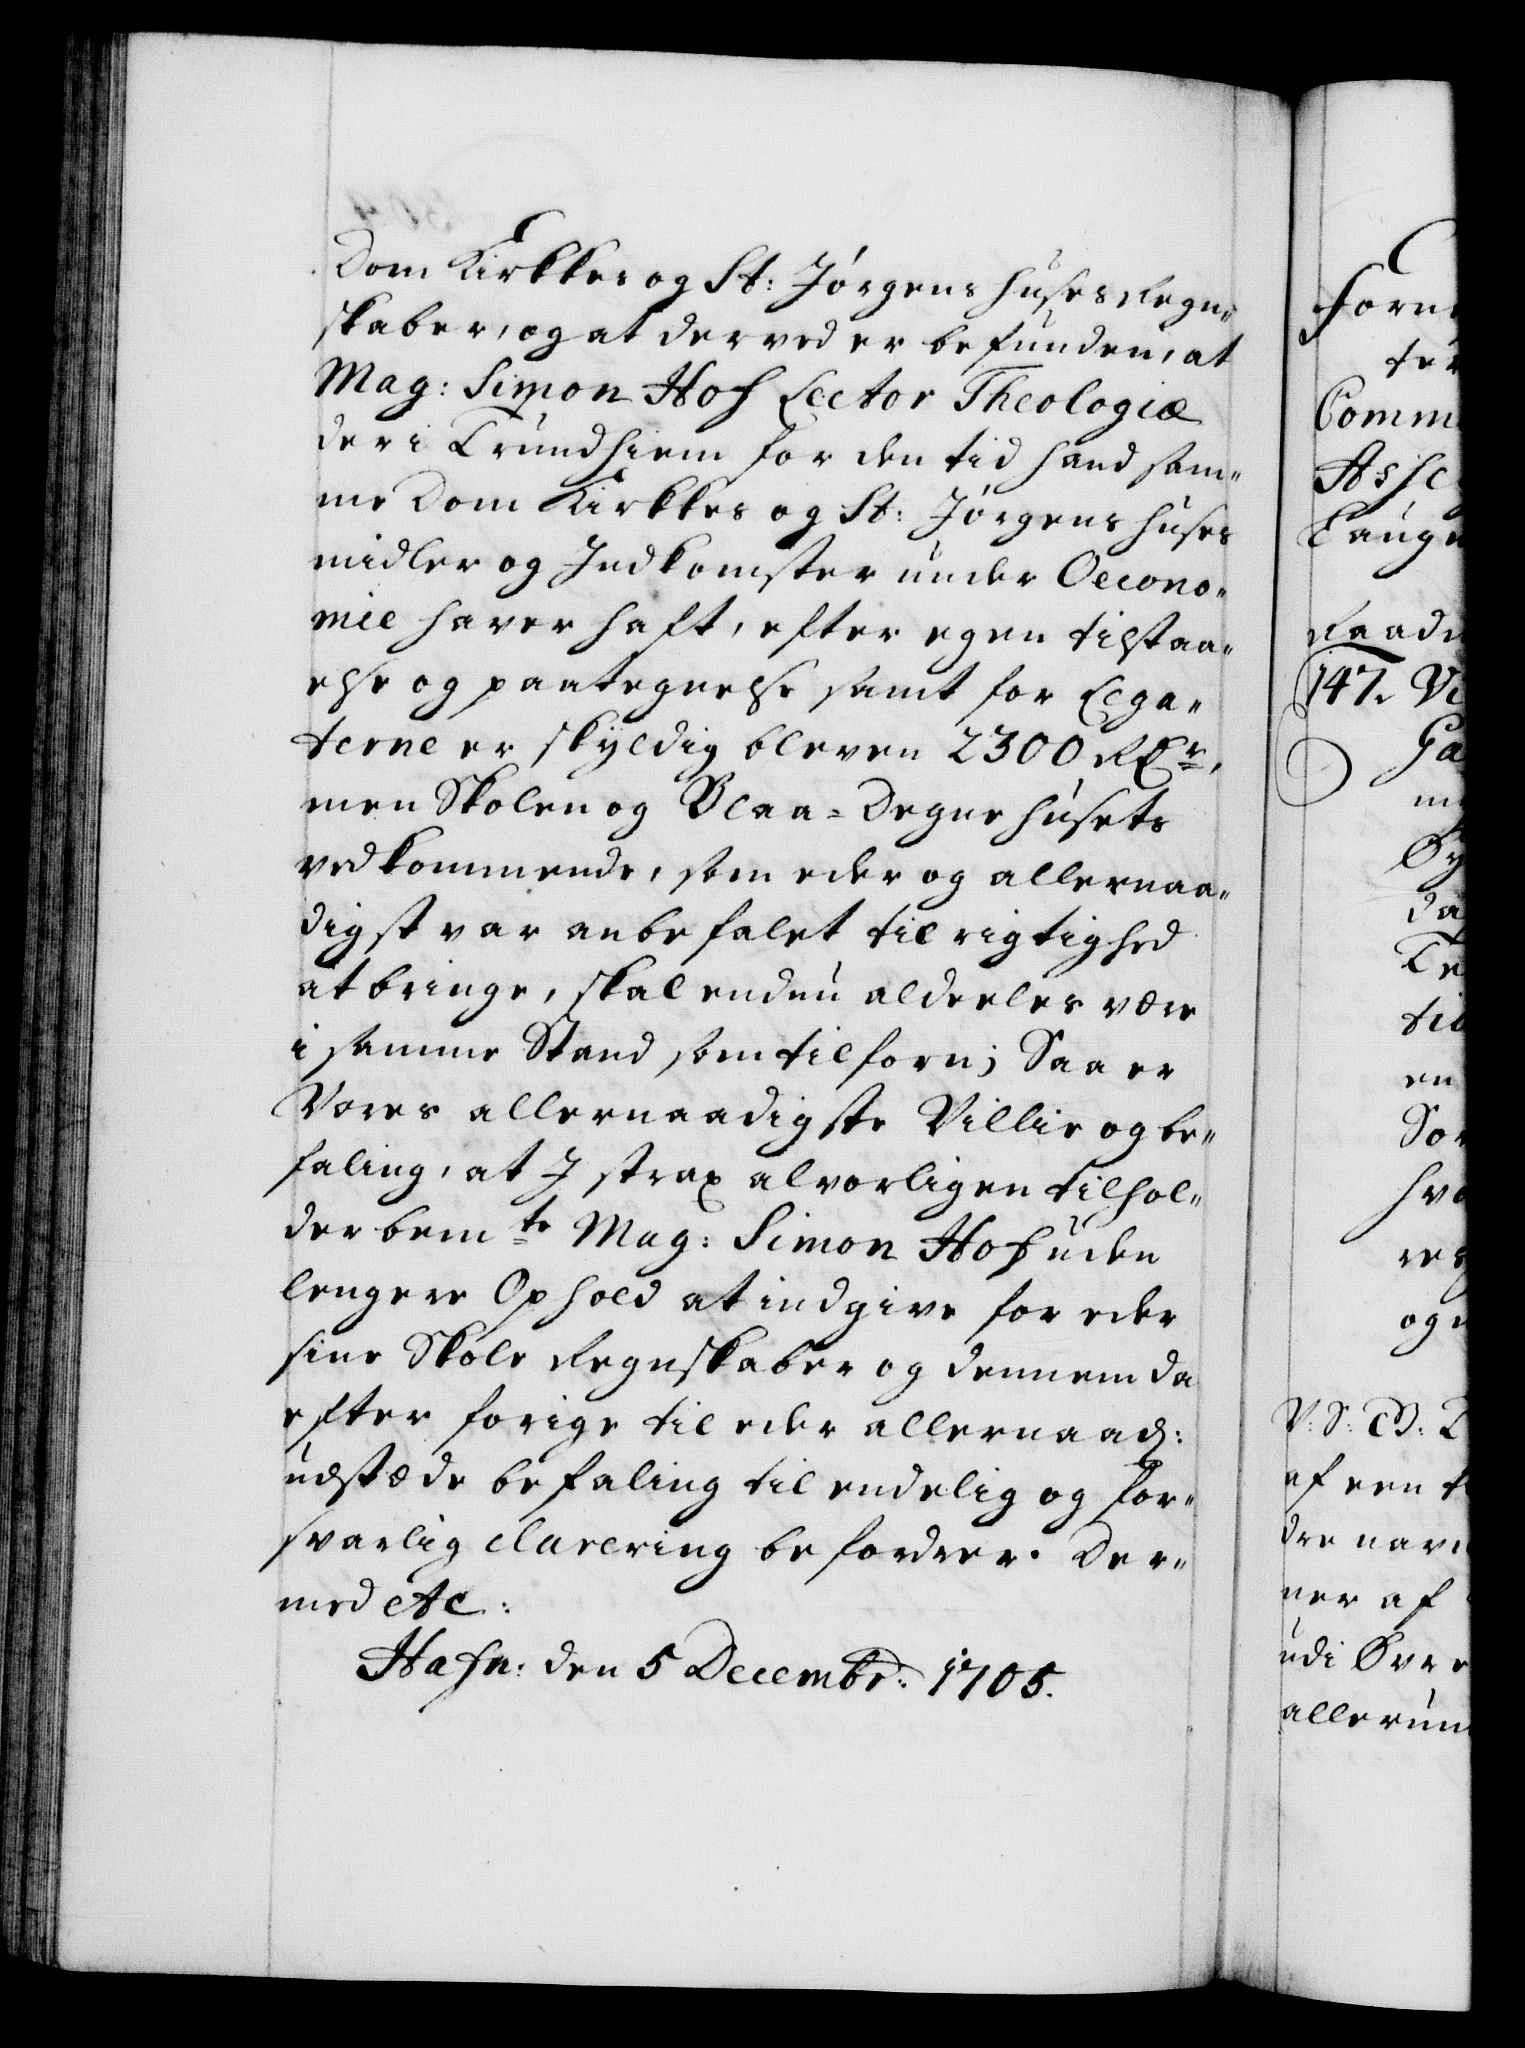 Dom Kirkkes og St: Jørgens Huses Regn„
skaber, og at derved er befunden, at
Mag: Simon Hof Lector Theologiæ
der i Trundhiem for den tid hand sam„
me Dom Kirkkes og St: Jørgens Huses
midler og Indkomster under Oecono„
mie haver haft, efter egen tilstaa„
else og paategnelse samt for Lega„
terne er skyldig bleven 2300 RDr,
men Skolen og Blaa=Degne Husets
vedkommende, som eder og allernaa„
digst var anbefalet til rigtighed
at bringe, skal endnu aldeeles være
i samme Stand som tilforn; Saa er
Vores allernaadigste Villie og be„
faling, at I strax alvorligen tilhol„
der bemte Mag: Simon Hof uden
lengere Ophold at indgive for eder
sine Skole Regnskaber og dennem da
efter forige til eder allernaad:
udstæde befaling til endelig og for„
svarlig clarering befordrer. Der„
med etc:
Hafn: den 5 Decembr: 1705.
forn
ter
Comm
Asse
Laugm
Raad
147. Vi
Ga
V: S: G: T
af een t
dre nav
ner af
udi Øvre
allerun